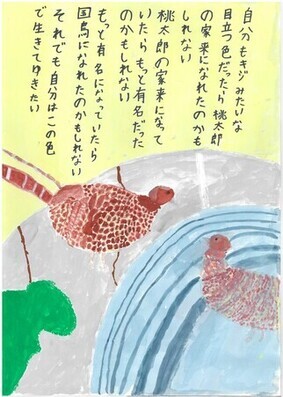 自分もキジみたいな
目立つ色だったら桃太郎
の家来になれたのかも
しれない
桃太郎の家来になって
いたらもっと有名だった
のかもしれない
もっと有名になっていたら
国鳥になれたのかもしれない
それでも自分はこの色
で生きてゆきたい